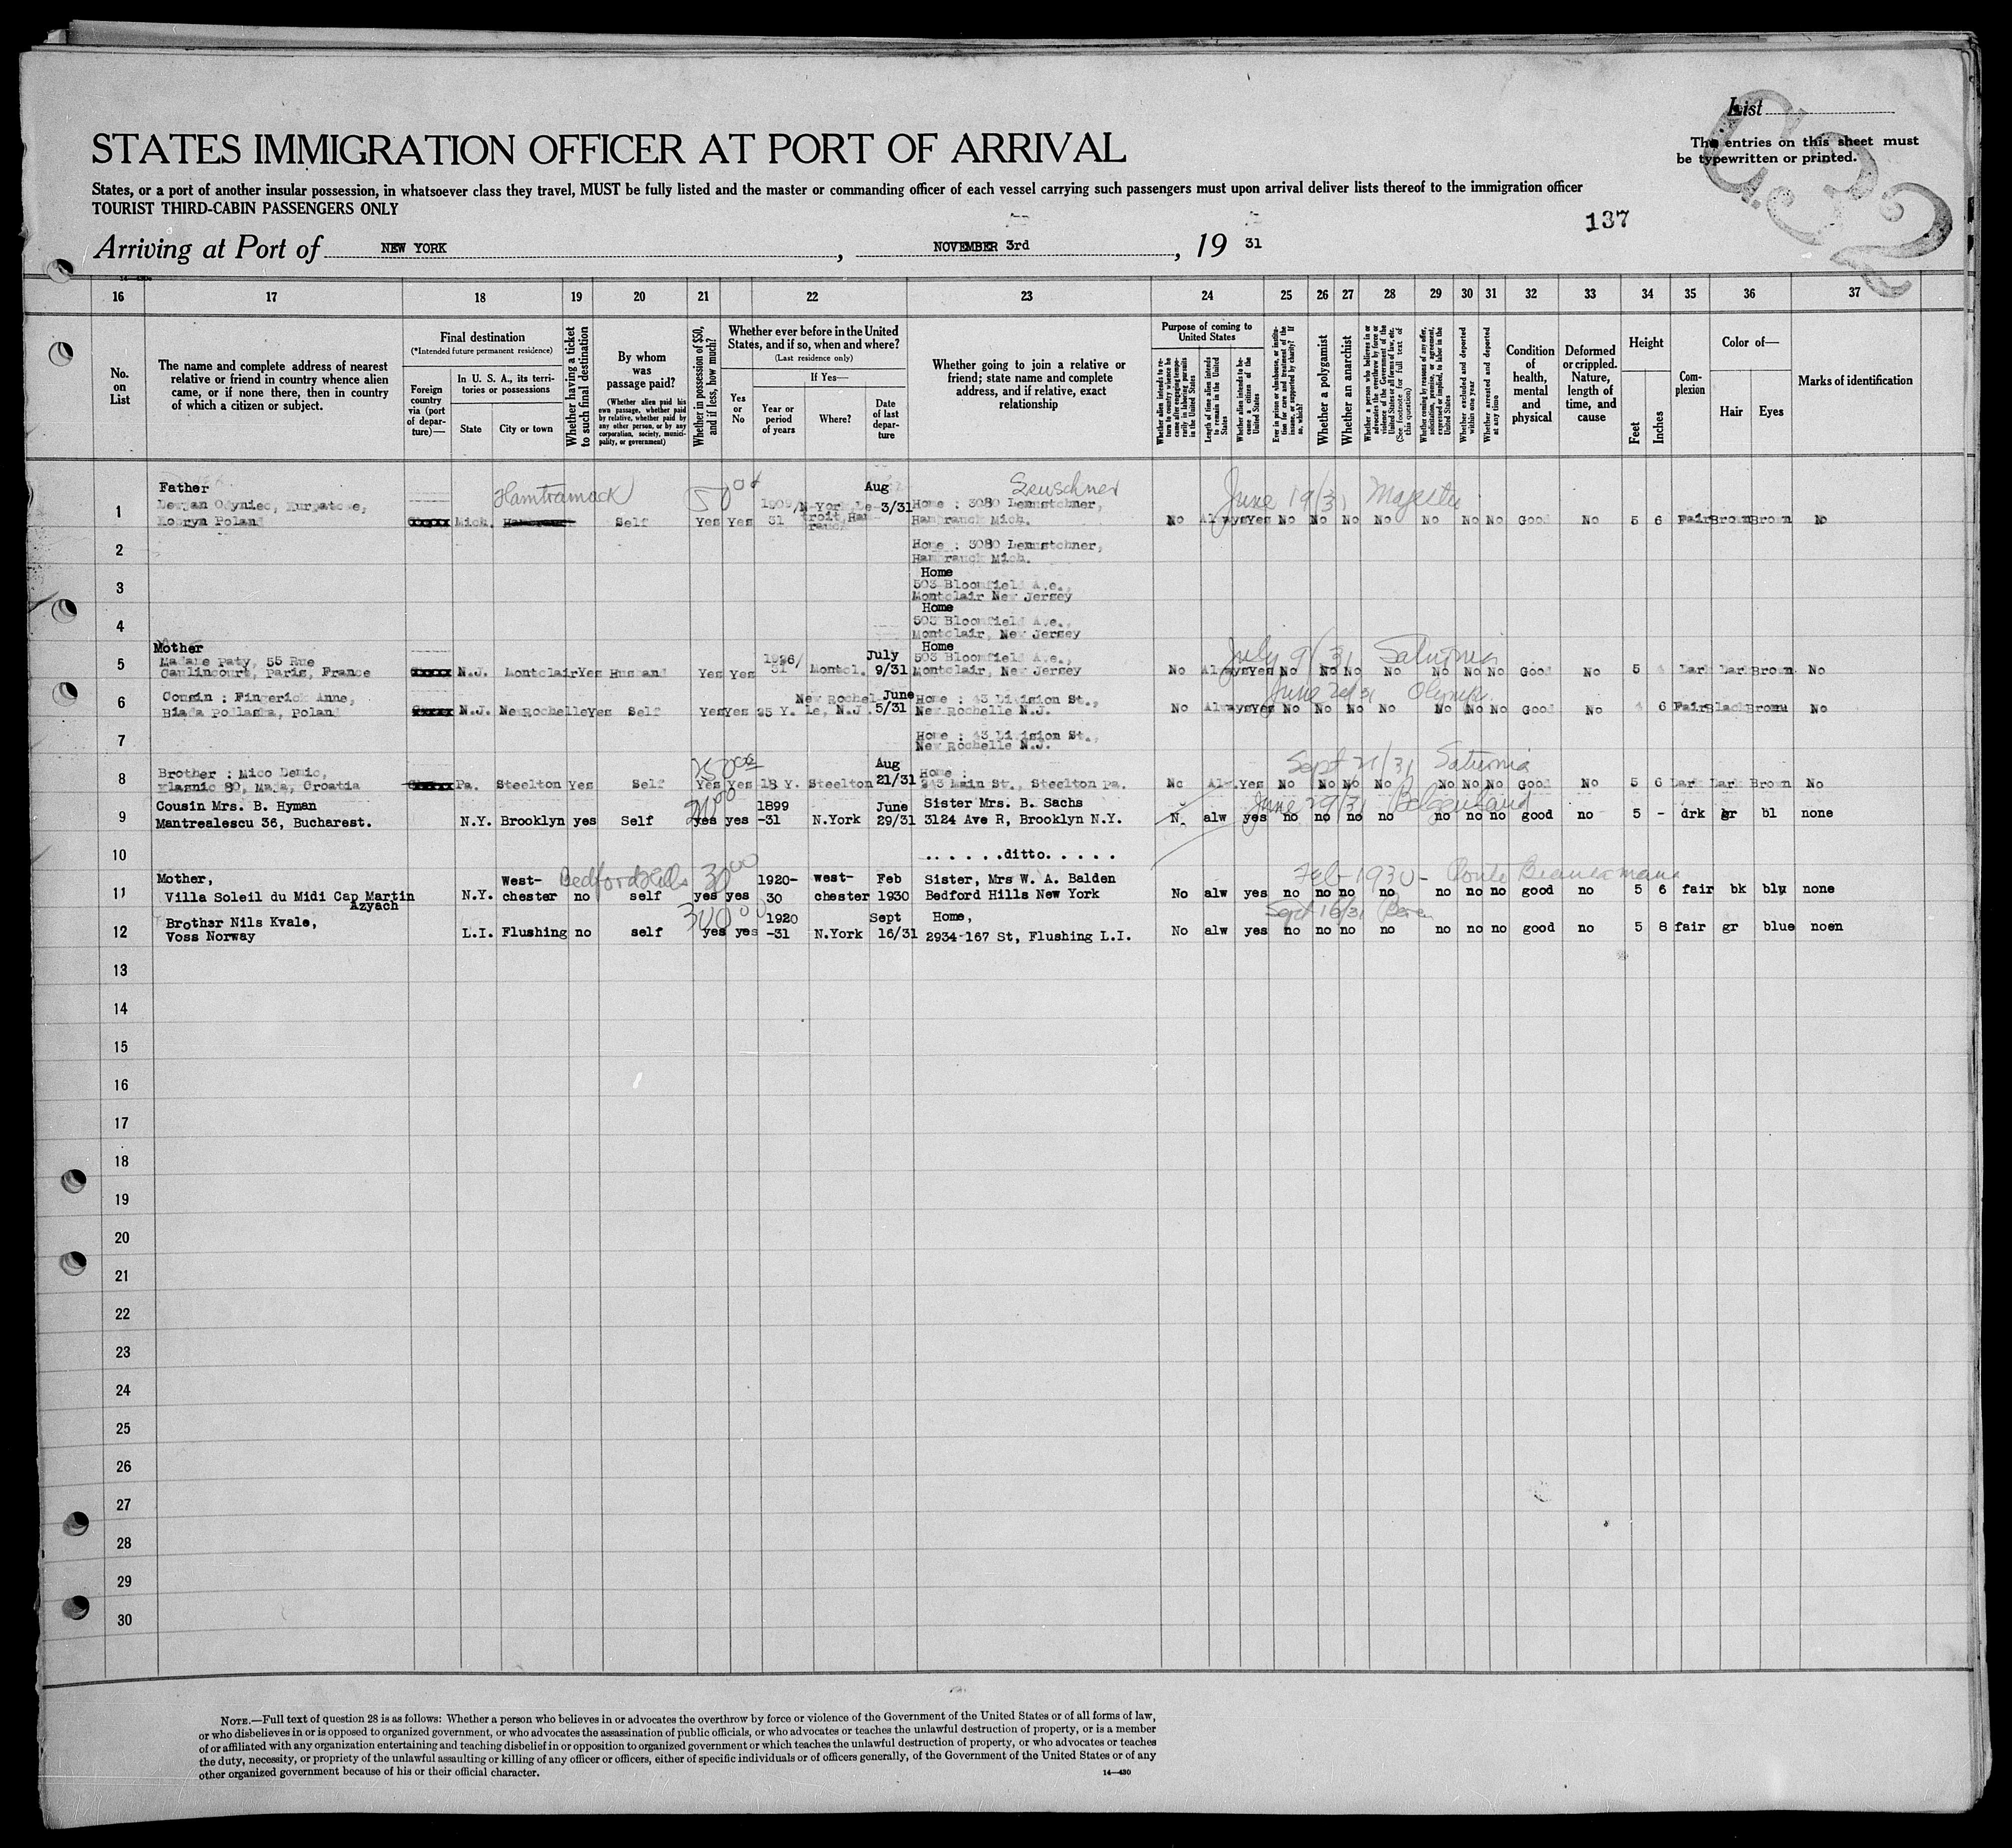 List
The entries on this sheet must
be typewritten or printed.
STATES IMMIGRATION OFFICER AT PORT OF ARRIVAL
States, or a port of another insular possession, in whatsoever class they travel, MUST be fully listed and the master or commanding officer of each vessel carrying such passengers must upon arrival deliver lists thereof to the immigration officer
TOURIST THIRD-CABIN PASSENGERS ONLY
137
Arriving at Port of NEW YORK, NOVEMBER 3rd, 19 31
16 17 18 19 20 21 22 23 24 25 26 27 28 29 30 31 32 33 34 35 36 37
No. on List
The name and complete address of nearest relative or friend in country whence alien came, or if none there, then in country of which a citizen or subject.
Final destination
(*Intended future permanent residence)
Foreign country via (port of departure)—
In U. S. A., its territories or possessions
State
City or town
Whether having a ticket to such final destination
By whom was passage paid?
(Whether alien paid his own passage, whether paid by relative, whether paid by any other person, or by any corporation, society, municipality, or government)
Whether in possession of $50, and if less, how much?
Whether ever before in the United States, and if so, when and where?
(Last residence only)
Yes or No
If Yes—
Year or period of years
Where?
Date of last departure
Whether going to join a relative or friend; state name and complete address, and if relative, exact relationship
Purpose of coming to United States
Whether alien intends to return to country whence he came after engaging temporarily in laboring pursuits in the United States
Length of time alien intends to remain in the United States
Whether alien intends to become a citizen of the United States
Ever in prison or almshouse, or institution for care and treatment of the insane, or supported by charity? If so, which?
Whether a polygamist
Whether an anarchist
Whether a person who believes in or advocates the overthrow by force or violence of the Government of the United States or all forms of law, etc. (See footnote for full text of this question)
Whether coming by reasons of any offer, solicitation, promise, or agreement, expressed or implied, to labor in the United States
Whether excluded and deported within one year
Whether arrested and deported at any time
Condition of health, mental and physical
Deformed or crippled. Nature, length of time, and cause
Height
Feet
Inches
Complexion
Color of—
Hair
Eyes
Marks of identification
Father Hamtramack Aug June 19/31
1 Odyniec, Kobryn Poland Mich. Self Yes Yes 31 3/31 Home : 3080 Mich. No Always Yes No No No No No No No Good No 5 6 Fair Brown Brown No
2 Home : 3080 Mich.
3 Home 503 Bloomfield Ave., Montclair New Jersey
4 Home 503 Bloomfield Ave., Montclair, New Jersey
Mother July 9/31 Saturnia
5 Madame Paty, 55 Rue Caulincourt, Paris, France N.J. Montclair Yes Husband Yes Yes 1926/31 Montcl. July 9/31 Home 503 Bloomfield Ave., Montclair, New Jersey No Always Yes No No No No No No No Good No 5 4 Dark Dark Brown No
6 Cousin : Fingerick Anne, Biada Podlaska, Poland N.J. NewRochelle Yes Self Yes Yes 25 Y. New Rochelle, N.J. June 5/31 Home : 43 Division St., New Rochelle N.J. No Always Yes No No No No No No No Good No 4 6 Fair Black Brown No
7 Home : 43 Division St., New Rochelle N.J.
250.00 Sept 21/31 Saturnia
8 Brother : Mico Demic, Klasnic 80, Maja, Croatia Pa. Steelton Yes Self Yes Yes 18 Y. Steelton Aug 21/31 Home : 243 Main St., Steelton Pa. No Alw. Yes No No No No No No No Good No 5 6 Dark Dark Brown No
June 29/31 Belgenland
9 Cousin Mrs. B. Hyman Mantrealescu 36, Bucharest. N.Y. Brooklyn yes Self yes yes 1899 -31 N.York June 29/31 Sister Mrs. B. Sachs 3124 Ave R, Brooklyn N.Y. N. alw yes no no no no no no no good no 5 - drk gr bl none
10 . . . . . .ditto. . . . .
Bedford Hills 30.00 Feb 1930 - Conte Biancamano
11 Mother, Villa Soleil du Midi Cap Martin Azyach N.Y. West-chester no self yes yes 1920-30 west-chester Feb 1930 Sister, Mrs W. A. Balden Bedford Hills New York No alw yes no no no no no no no good no 5 6 fair bk blu none
300.00 Sept 16/31
12 Brother Nils Kvale, Voss Norway L.I. Flushing no self yes yes 1920 -31 N.York Sept 16/31 Home, 2934-167 St, Flushing L.I. No alw yes no no no no no no no good no 5 8 fair gr blue noen
13
14
15
16
17
18
19
20
21
22
23
24
25
26
27
28
29
30
NOTE.—Full text of question 28 is as follows: Whether a person who believes in or advocates the overthrow by force or violence of the Government of the United States or of all forms of law,
or who disbelieves in or is opposed to organized government, or who advocates the assassination of public officials, or who advocates or teaches the unlawful destruction of property, or is a member
of or affiliated with any organization entertaining and teaching disbelief in or opposition to organized government or which teaches the unlawful destruction of property, or who advocates or teaches
the duty, necessity, or propriety of the unlawful assaulting or killing of any officer or officers, either of specific individuals or of officers generally, of the Government of the United States or of any
other organized government because of his or their official character.
14—430